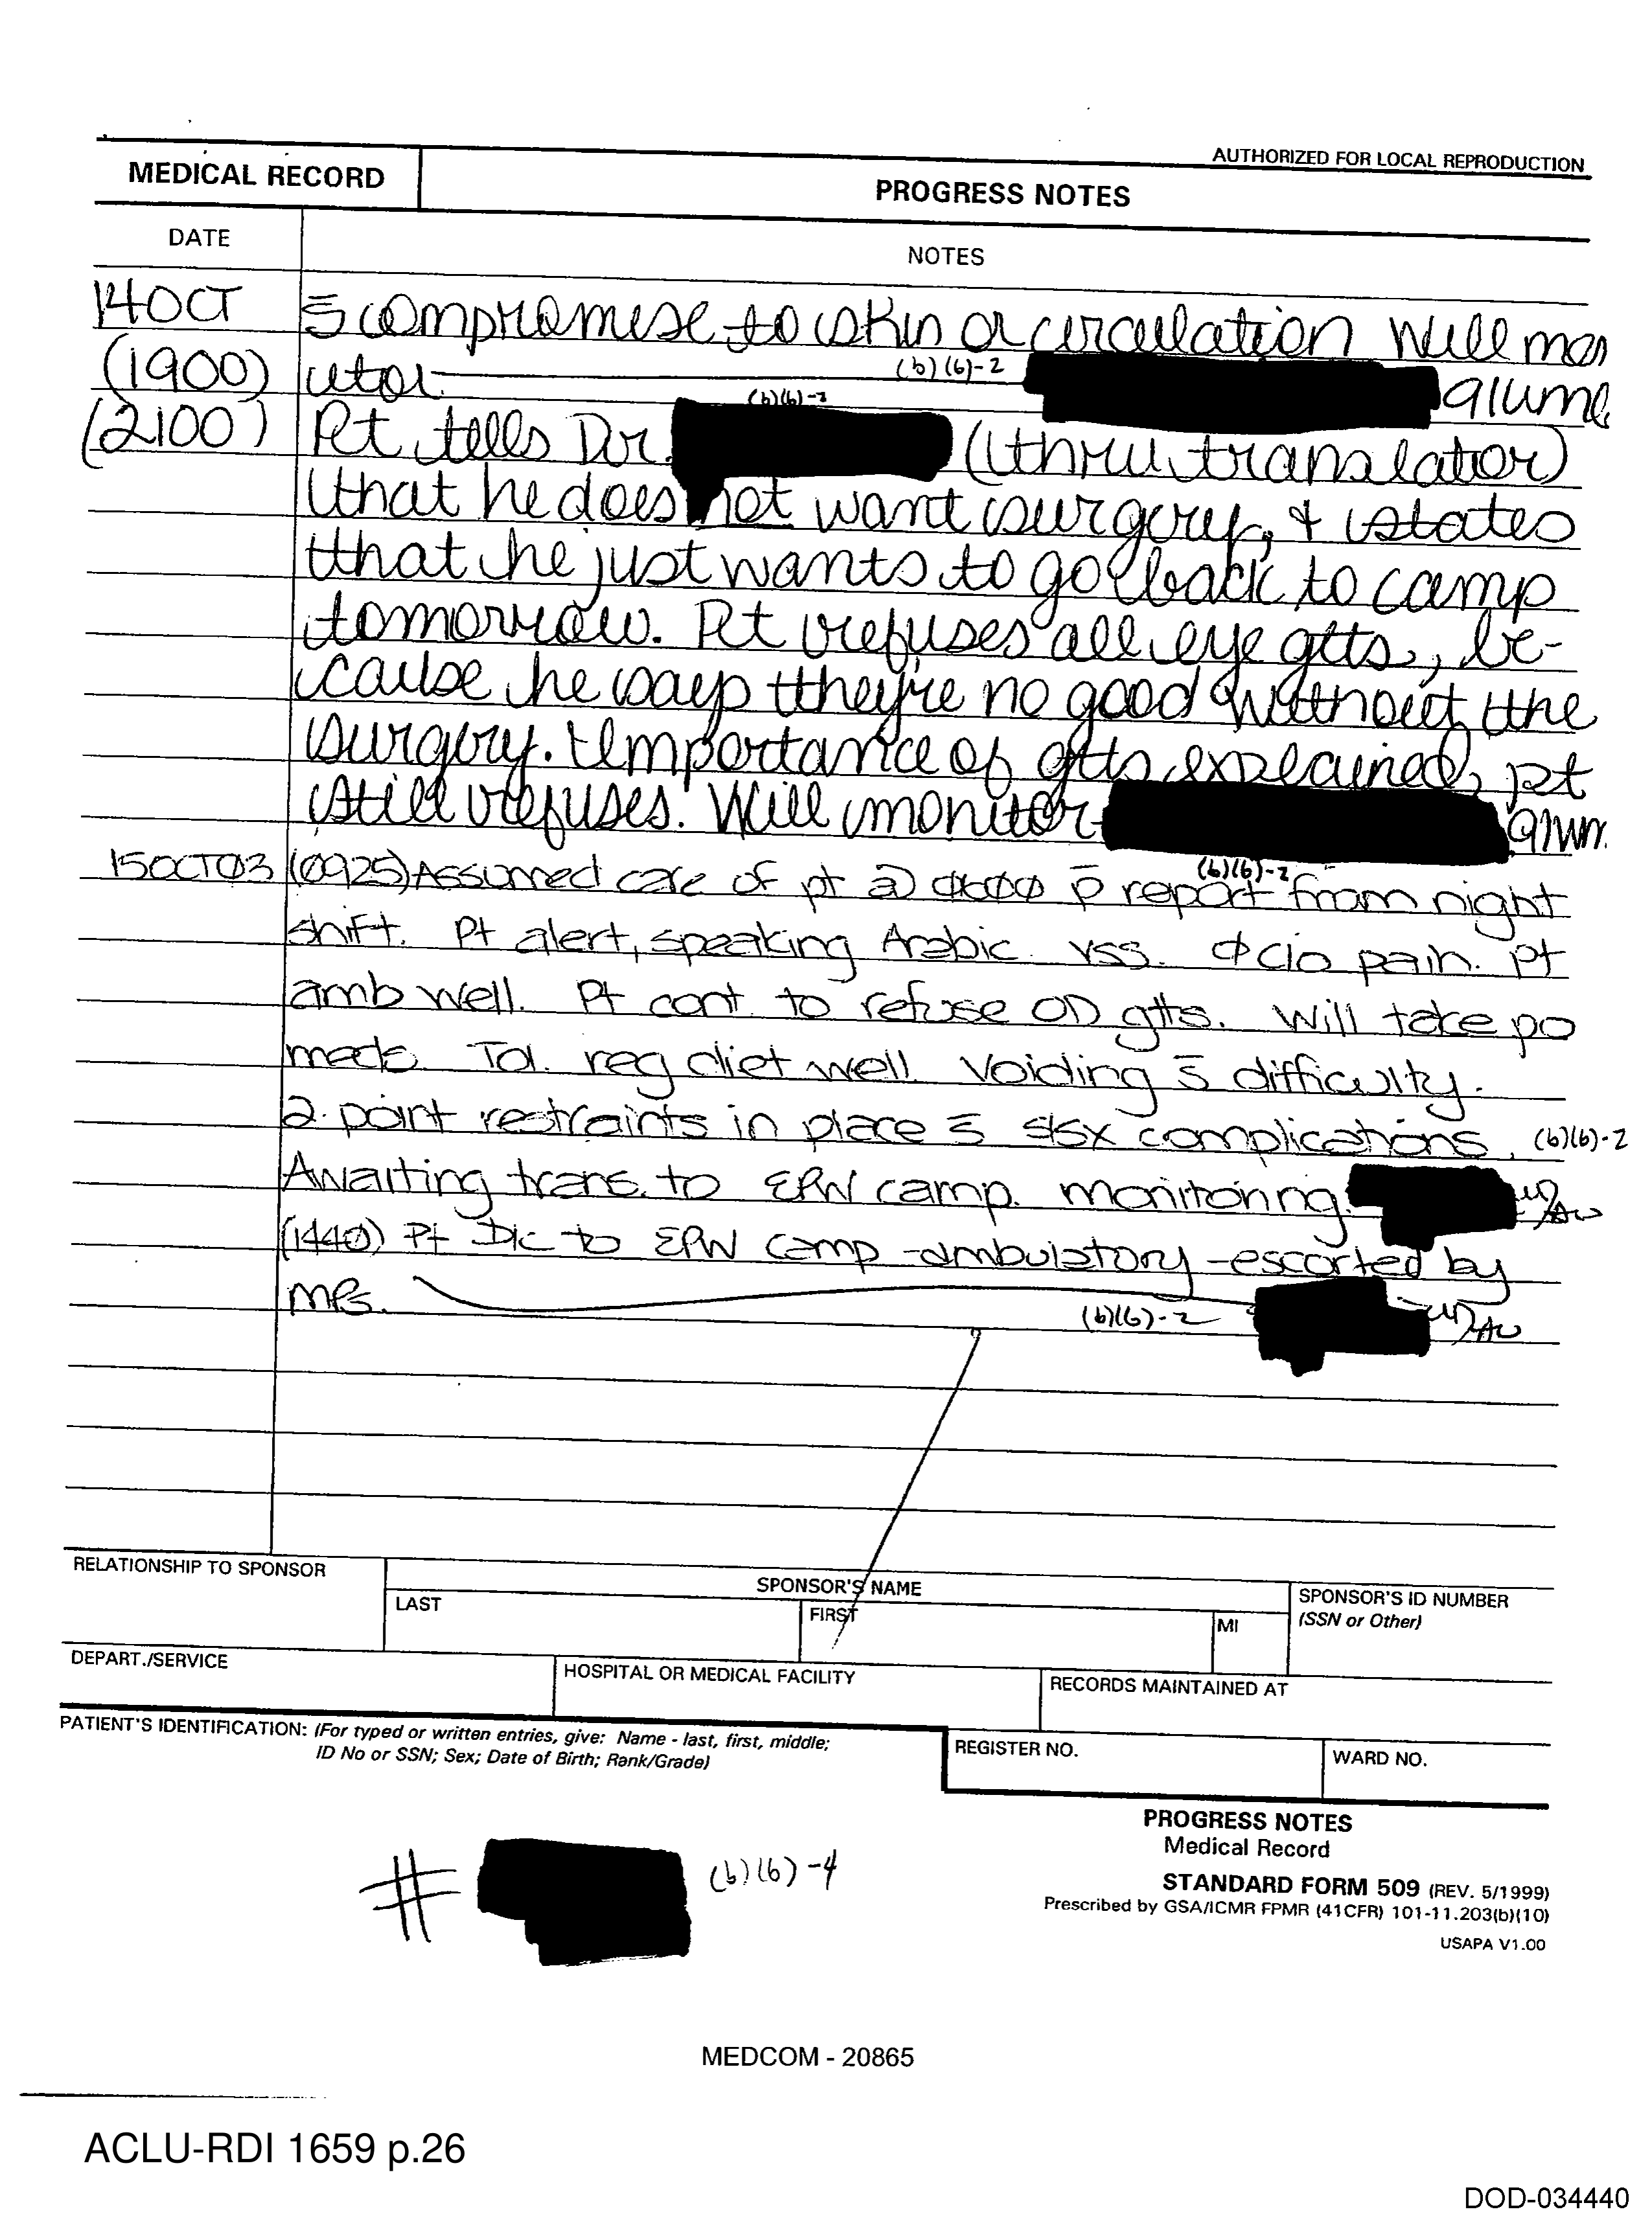 AUTHORIZED FOR LOCAL REPRODUCTION
MEDICAL RECORD
PROGRESS NOTES
DATE
NOTES
14OCT s̄ compromise to skin or circulation Will mon
(1900) itor. (b)(6)-2 91WM6
(2100) Pt tells Dr. (b)(6)-2 (thru translator)
that he does not want surgery, + states
that he just wants to go back to camp
tomorrow. Pt refuses all eye gtts, be-
cause he says they're no good without the
surgery. Importance of gtts explained, pt
still refuses. Will monitor
15OCT03 (0925) Assumed care of pt p̄ report from night (b)(6)-2
shift. Pt alert, speaking Arabic. VSS. Φ c/o pain. Pt
amb well. Pt cont. to refuse OD gtts. Will take po
meds. Tol. reg diet well. Voiding s̄ difficulty.
2-point restraints in place s̄ s/sx complications. (b)(6)-2
Awaiting trans. to EPW camp. monitoring.
(1440) Pt D/c to EPW camp -ambulatory -escorted by
MPs. (b)(6)-2
RELATIONSHIP TO SPONSOR
SPONSOR'S NAME
LAST
FIRST
MI
SPONSOR'S ID NUMBER
(SSN or Other)
DEPART./SERVICE
HOSPITAL OR MEDICAL FACILITY
RECORDS MAINTAINED AT
PATIENT'S IDENTIFICATION: (For typed or written entries, give: Name - last, first, middle;
ID No or SSN; Sex; Date of Birth; Rank/Grade)
REGISTER NO.
WARD NO.
PROGRESS NOTES
Medical Record
STANDARD FORM 509 (REV. 5/1999)
Prescribed by GSA/ICMR FPMR (41CFR) 101-11.203(b)(10)
USAPA V1.00
# (b)(6)-4
MEDCOM - 20865
ACLU-RDI 1659 p.26
DOD-034440